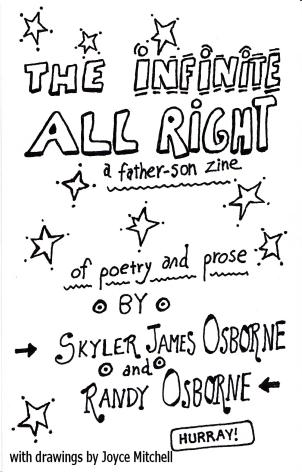 THE INFINITE
ALL RIGHT
a father-son zine
of poetry and prose
BY
SKYLER JAMES OSBORNE
and
RANDY OSBORNE
HURRAY!
with drawings by Joyce Mitchell